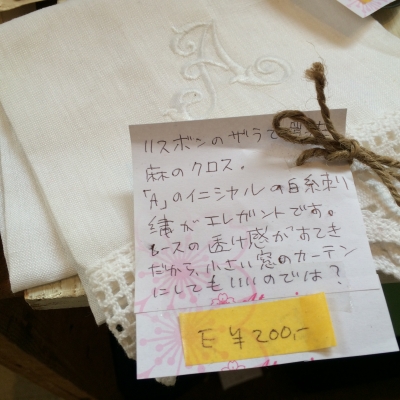 A
リスボンのザラで
麻のクロス。
「A」のイニシャルの白糸刺
繍がエレガントです。
レースの透け感がすてき
だから、小さい窓のカーテン
にしてもいいのでは？
E ¥200,-